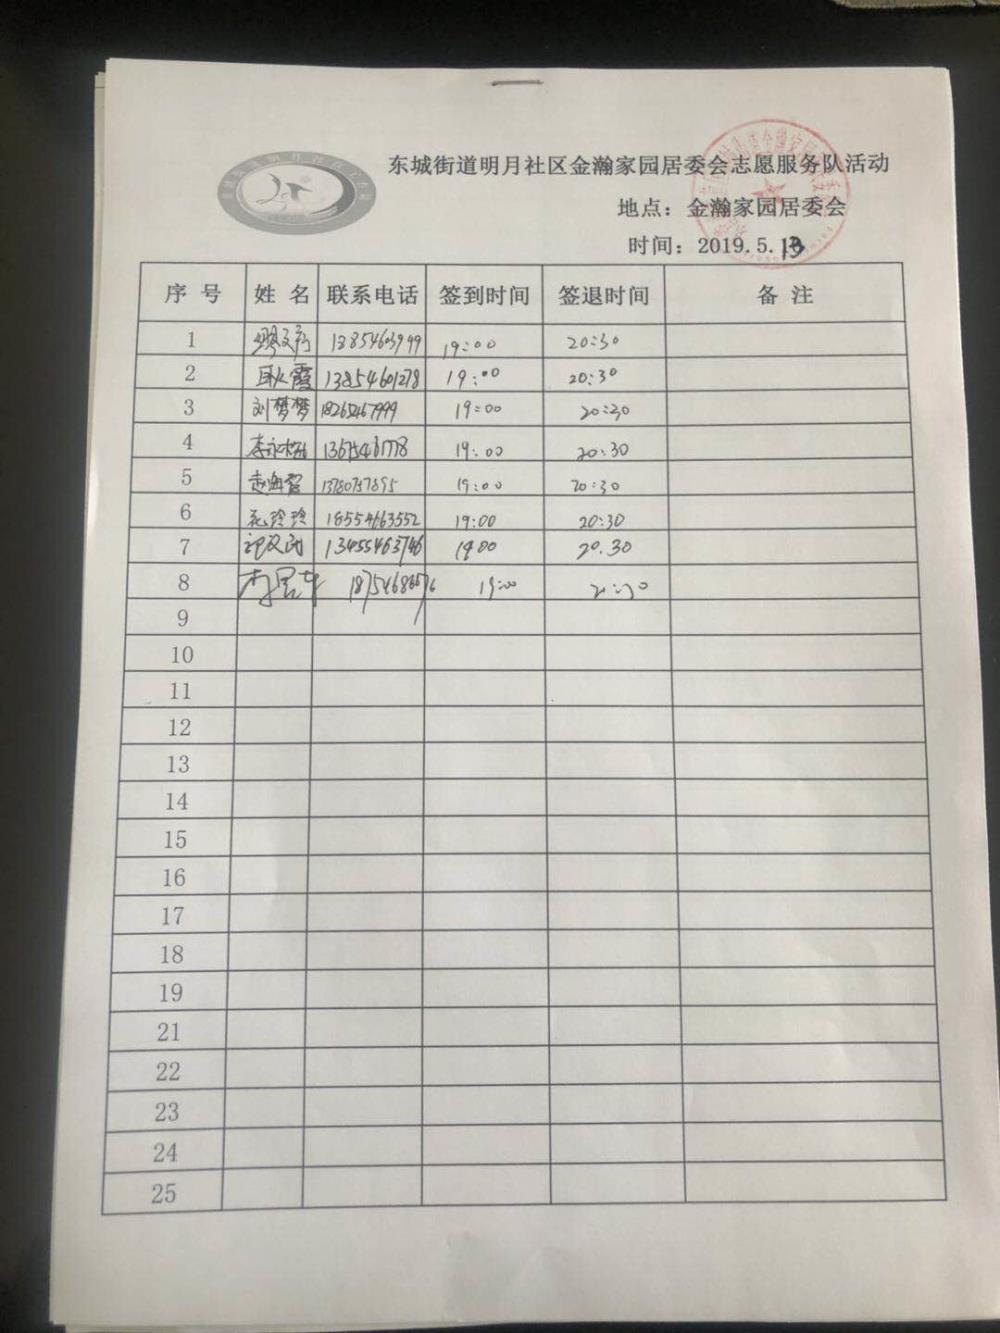 东城街道明月社区金瀚家园居委会志愿服务队活动
地点：金瀚家园居委会
时间：2019.5.13
序号 姓名 联系电话 签到时间 签退时间 备注
1 13854603999 19:00 20:30
2 耿霞 13854601278 19:00 20:30
3 刘梦梦 18265467999 19:00 20:30
4 19:00 20:30
5 赵海霞 13780757895 19:00 20:30
6 花玲玲 18554663552 19:00 20:30
7 13455463746 19:00 20.30
8 19:00
9
10
11
12
13
14
15
16
17
18
19
21
22
23
24
25